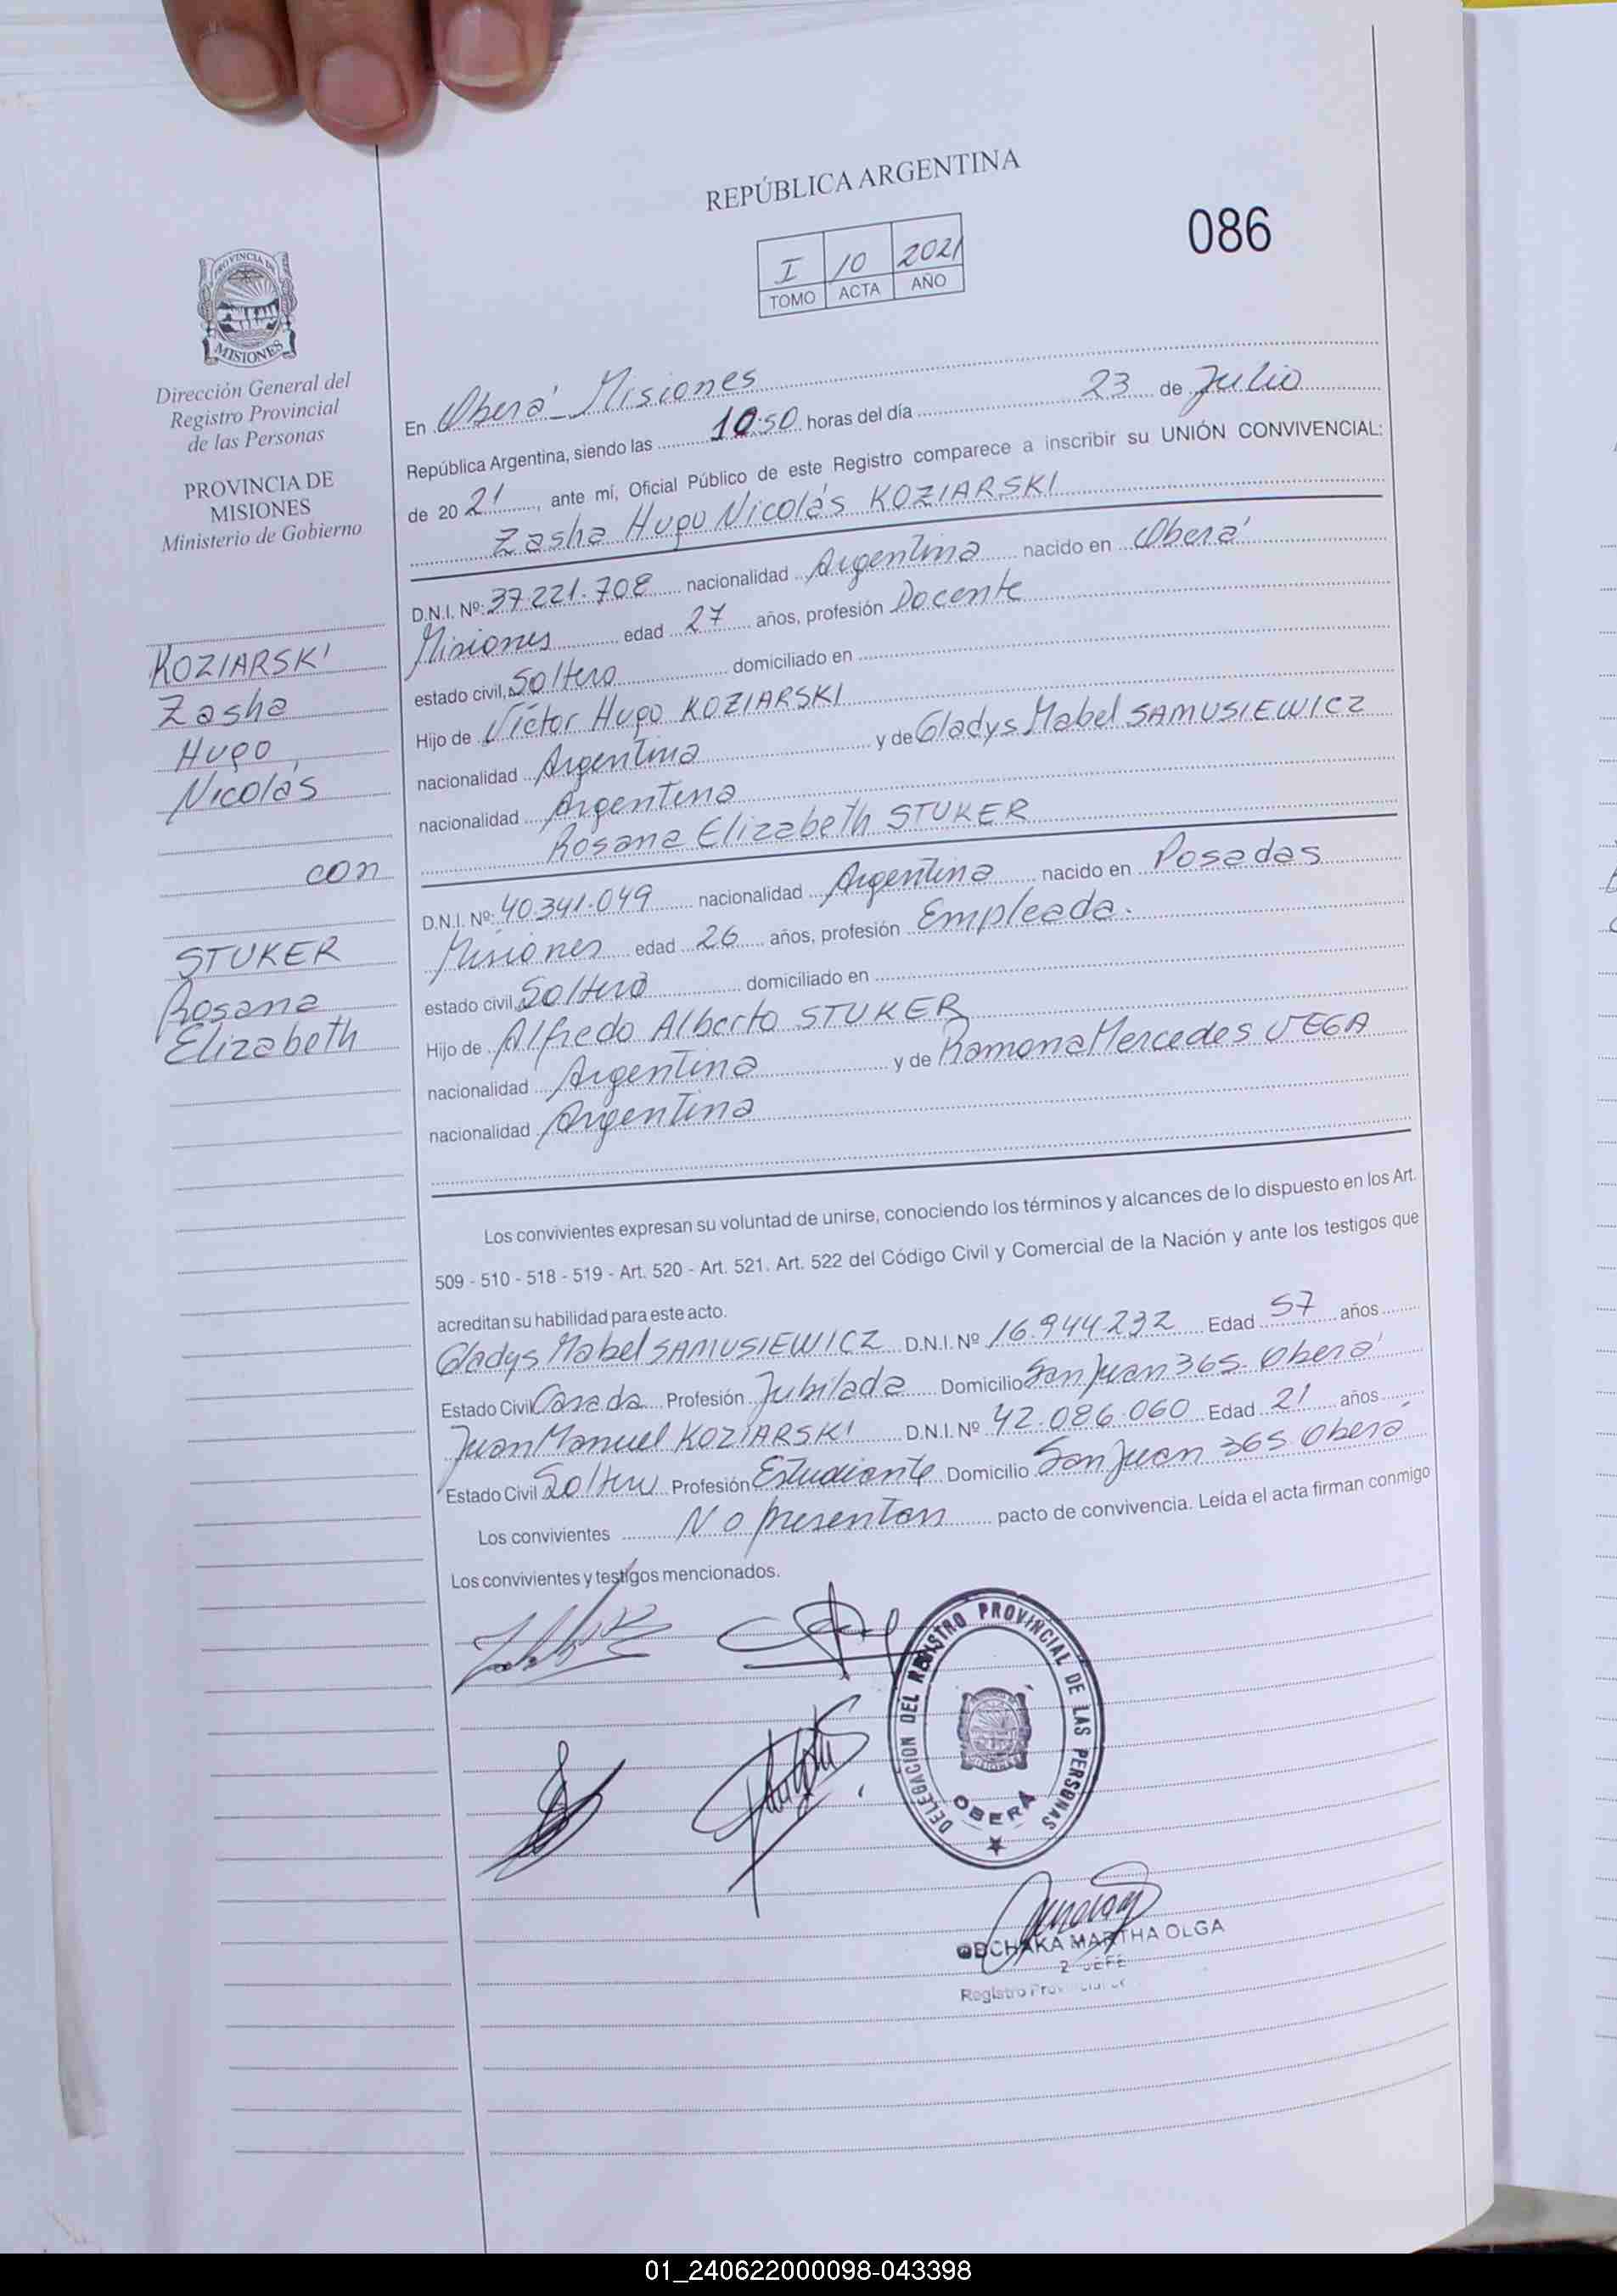 REPÚBLICA ARGENTINA
086
I 10 2021
TOMO ACTA AÑO
PROVINCIA DE
MISIONES
Dirección General del
Registro Provincial
de las Personas
PROVINCIA DE
MISIONES
Ministerio de Gobierno
KOZIARSKI
Zasha
Hugo
Nicolás
con
STUKER
Rosana
Elizabeth
En Oberá - Misiones
República Argentina, siendo las 10:50 horas del día 23 de Julio
de 2021, ante mí, Oficial Público de este Registro comparece a inscribir su UNIÓN CONVIVENCIAL:
Zasha Hugo Nicolás KOZIARSKI
D.N.I. Nº: 37.221.708 nacionalidad Argentina nacido en Oberá
Misiones edad 27 años, profesión Docente
estado civil, Soltero domiciliado en
Hijo de Víctor Hugo KOZIARSKI
nacionalidad Argentina y de Gladys Mabel SAMUSIEWICZ
nacionalidad Argentina
Rosana Elizabeth STUKER
D.N.I. Nº: 40.341.049 nacionalidad Argentina nacido en Posadas
Misiones edad 26 años, profesión Empleada.
estado civil, Soltera domiciliado en
Hijo de Alfredo Alberto STUKER
nacionalidad Argentina y de Ramona Mercedes VEGA
nacionalidad Argentina
Los convivientes expresan su voluntad de unirse, conociendo los términos y alcances de lo dispuesto en los Art.
509 - 510 - 518 - 519 - Art. 520 - Art. 521. Art. 522 del Código Civil y Comercial de la Nación y ante los testigos que
acreditan su habilidad para este acto.
Gladys Mabel SAMUSIEWICZ D.N.I. Nº 16.944.232 Edad 57 años
Estado Civil Casada Profesión Jubilada Domicilio San Juan 365. Oberá
Juan Manuel KOZIARSKI D.N.I. Nº 42.086.060 Edad 21 años
Estado Civil Soltero Profesión Estudiante Domicilio San Juan 365 Oberá
Los convivientes No presentan pacto de convivencia. Leida el acta firman conmigo
Los convivientes y testigos mencionados.
DELEGACION DEL REGISTRO PROVINCIAL DE LAS PERSONAS
OBERÁ
MARTHA OLGA
2 JEFE
Registro
01_240622000098-043398